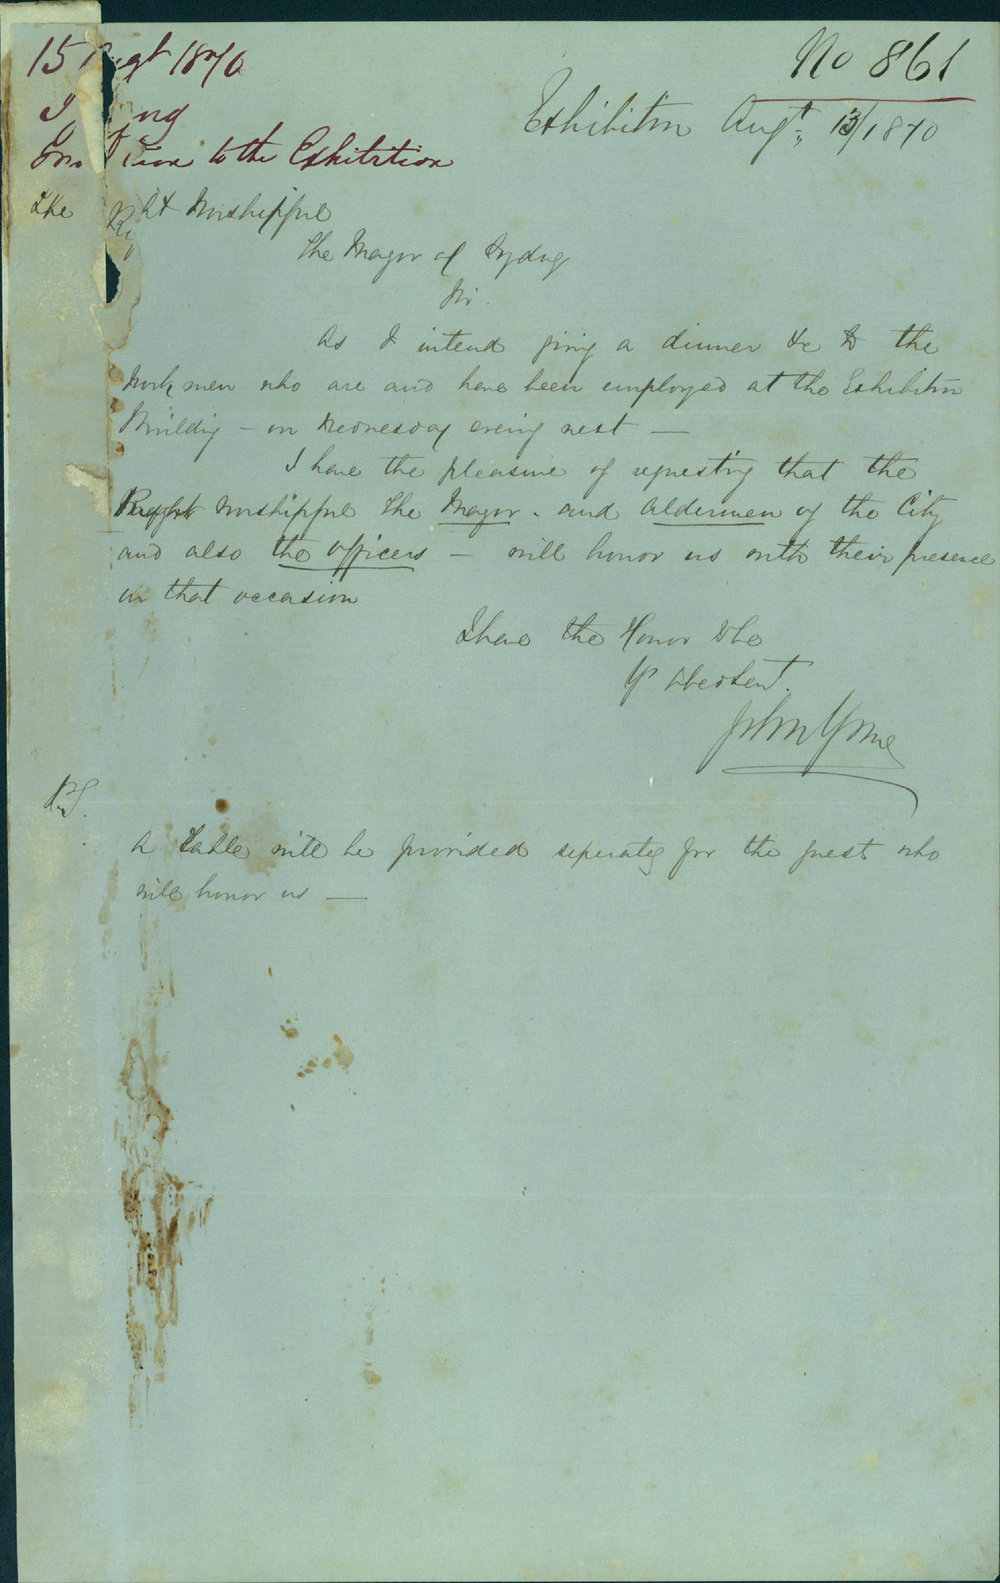 15 Augt 1870
No 861
J Young
Invitation to the Exhibition
Exhibition Augt 13/1870
The Right Worshipful
The Mayor of Sydney
Sir.
As I intend giving a dinner &c to the
Workmen who are and have been employed at the Exhibition
Building – on Wednesday evening next —
I have the pleasure of requesting that the
Right Worshipful The Mayor. and Aldermen of the City
and also the officers – will honor us with their presence
on that occasion
I have the Honor to be
Yr Obed Sert.
John Young
P.S.
A Table will be provided seperately for the guest who
will honor us —